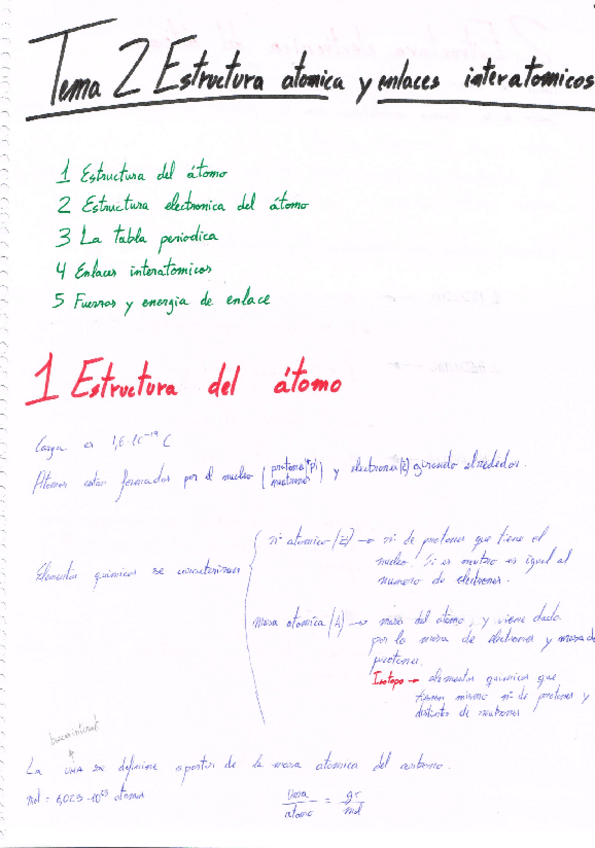 Tema 2 Estructura atomica y enlaces interatomicos
1 Estructura del átomo
2 Estructura electronica del átomo
3 La tabla periodica
4 Enlaces interatomicos
5 Fuerzas y energia de enlace
1 Estructura del átomo
Carga es 1,6·10⁻¹⁹ C
Atomos estan formados por el nucleo (protones p⁺ neutrones) y electrones (e⁻) girando alrededor.
Elementos quimicos se caracterizan
nº atomico (Z) → nº de protones que tiene el
nucleo. Si es neutro es igual al
numero de electrones.
masa atomica (A) → masa del atomo, y viene dada
por la masa de electrones y masa de
protones.
Isotopo → elementos quimicos que
tienen mismo nº de protones y
distintos de neutrones
buscar internet
La UMA se define apartir de la masa atomica del carbono.
mol = 6,023·10²³ atomos
uma/atomo = gr/mol